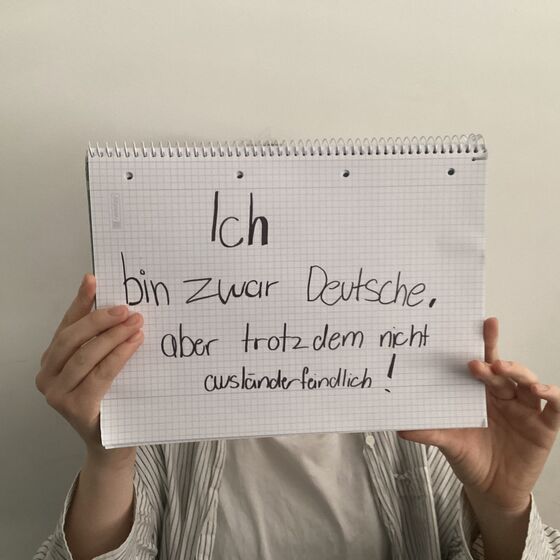 Ich
bin zwar Deutsche,
aber trotzdem nicht
ausländerfeindlich!